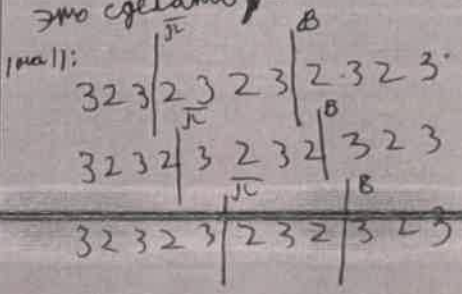 это сделать
π В
323|2323|2.323
π В
3232|3232|323
π В
32323|232|323